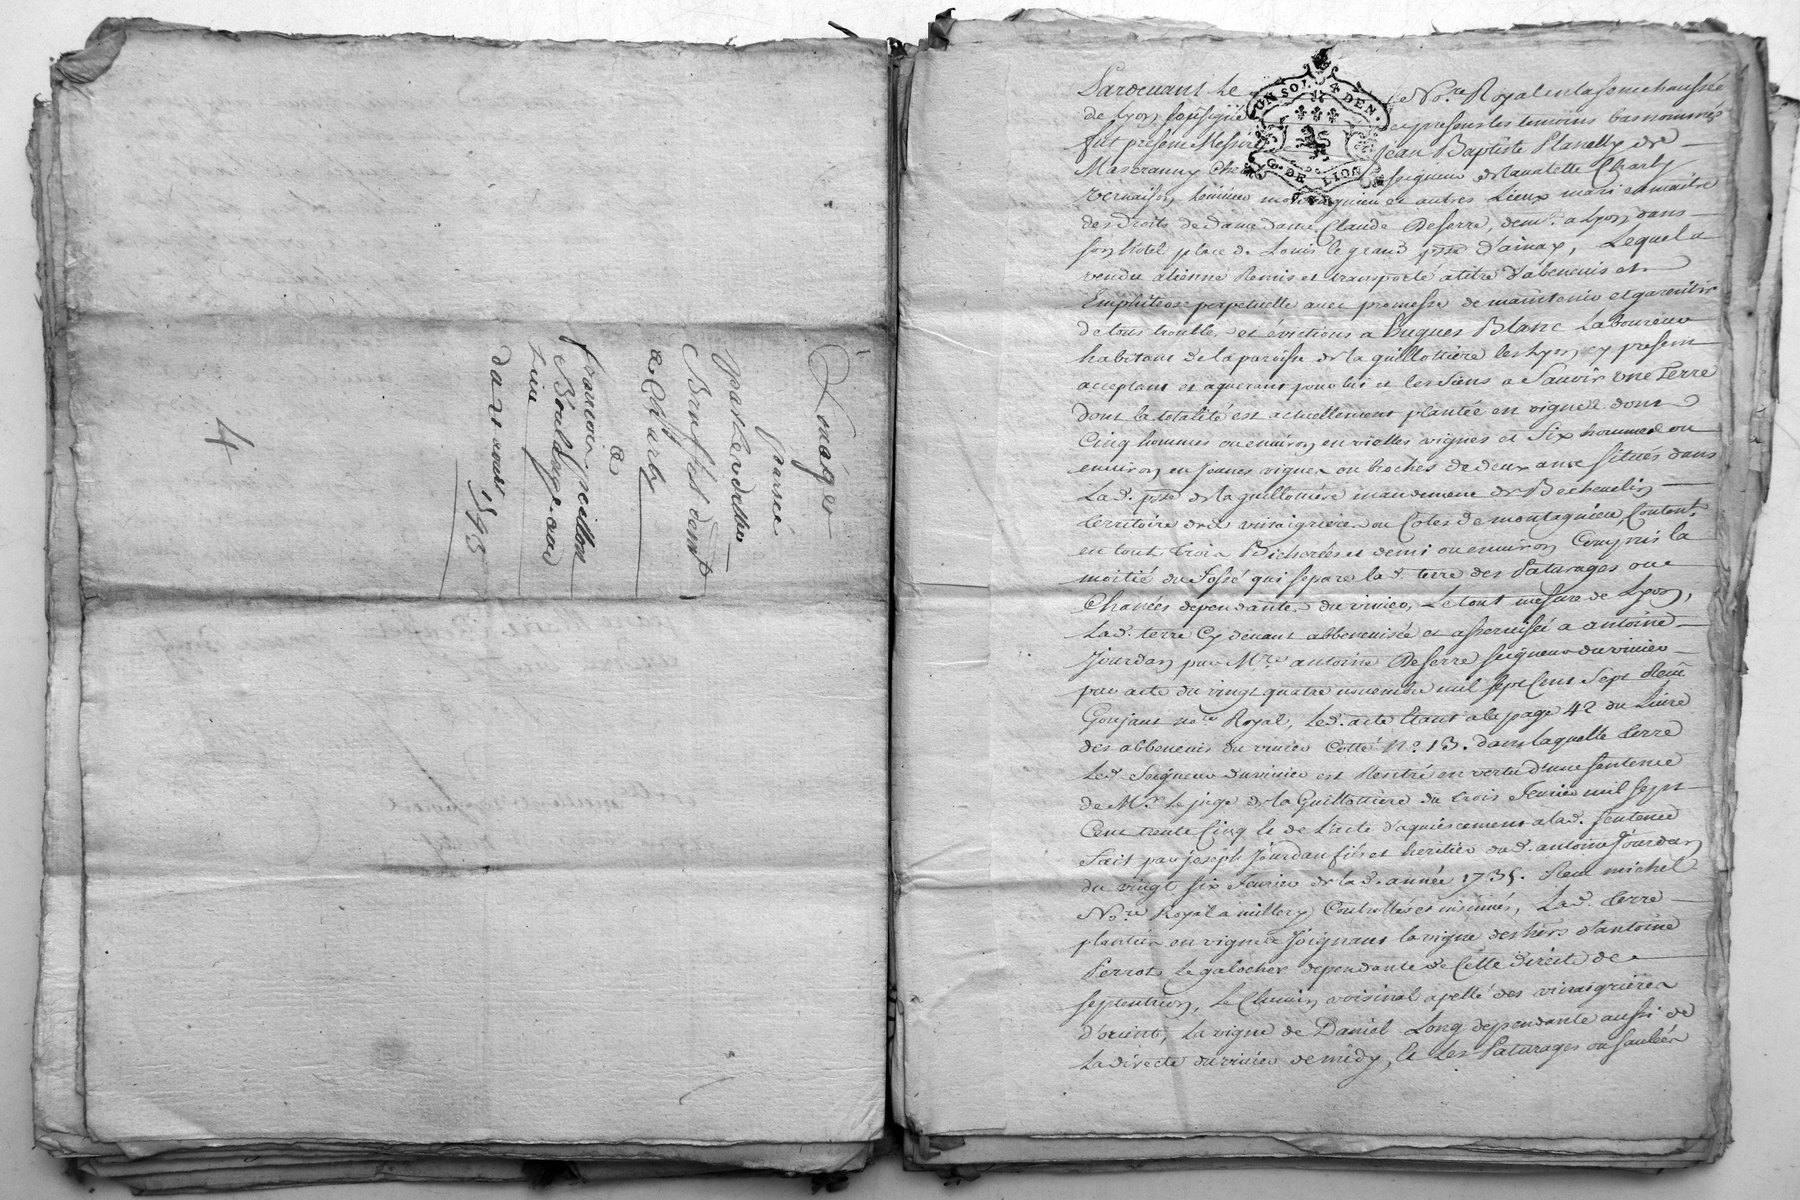 Louage
passé
par
a
de Charly
a
francois
Boulanger
Lion
dans
1593
4
UN SOL. 4 DEN.
G. DE LION
Pardevant le No.re Royal en la senechaussée
de Lyon soussigné et presents les temoins bas nommés
fut present Messire Jean Baptiste Planelly de
Mascranny Seigneur de Lavalette Charly
Vernaison, et autres Lieux mari et maitre
des droits de dame dame Claude Deserre, dem.t a Lyon dans
son hotel place de Louis le grand psse d'ainay, Lequel a
vendu aliené Remis et transporté a titre d'abenevis et
Emphiteose perpetuelle avec promesse de maintenir et garentir
de tous trouble et évictions a Hugues Blanc Laboureur
habitant de la paroisse de la guillottiere les Lyon cy present
acceptant et aquerant pour lui et les siens a Sauoir une Terre
dont la totalité est actuellement plantée en vignes dont
Cinq hommes ou environ en vielles vignes et Six hommes ou
environ en jeunes vignes ou broches de deux ans situés dans
Lad. psse de la guillottiere mandement de Bechevelin
territoire de vinaigriere ou Cotes de montaguieu, Conten.t
en tout trois Bicherées et demi ou environ Compris la
moitié du fossé qui separe lad. terre des Paturages ou
Chanées dependante du vivier, Le tout mesure de Lyon,
Lad. terre Cy devant abbenevisée et asservisée a antoine
Jourdan par M.re antoine Deserre seigneur du vivier
par acte du vingt quatre novembre mil sept Cent Sept Reçu
Goujant no.re Royal, led. acte Etant a la page 42 du Livre
des abbenevis du vivier Cotté N.o 13. dans laquelle terre
Led. Seigneur du vivier est Rentré en vertu d'une sentence
de M.r Le juge de la Guillottiere du trois fevrier mil sept
Cent trente Cinq & de L'acte d'aquiescement a lad. sentence
fait par joseph Jourdan fils et heritier dud. antoine Jourdan
du vingt six fevrier de lad. année 1735. Reçu michel
No.re Royal a millery Controllés et insinués, Lad. terre
plantée en vignes Joignant la vigne des hers d'antoine
Perrot Le galochier dependante de Cette directe de
septentrion, Le Chemin voisinal apellé des vinaigrieres
d'orient, La vigne de Daniel Long dependante aussi de
La directe du vivier de midy, & les Paturages ou saulées